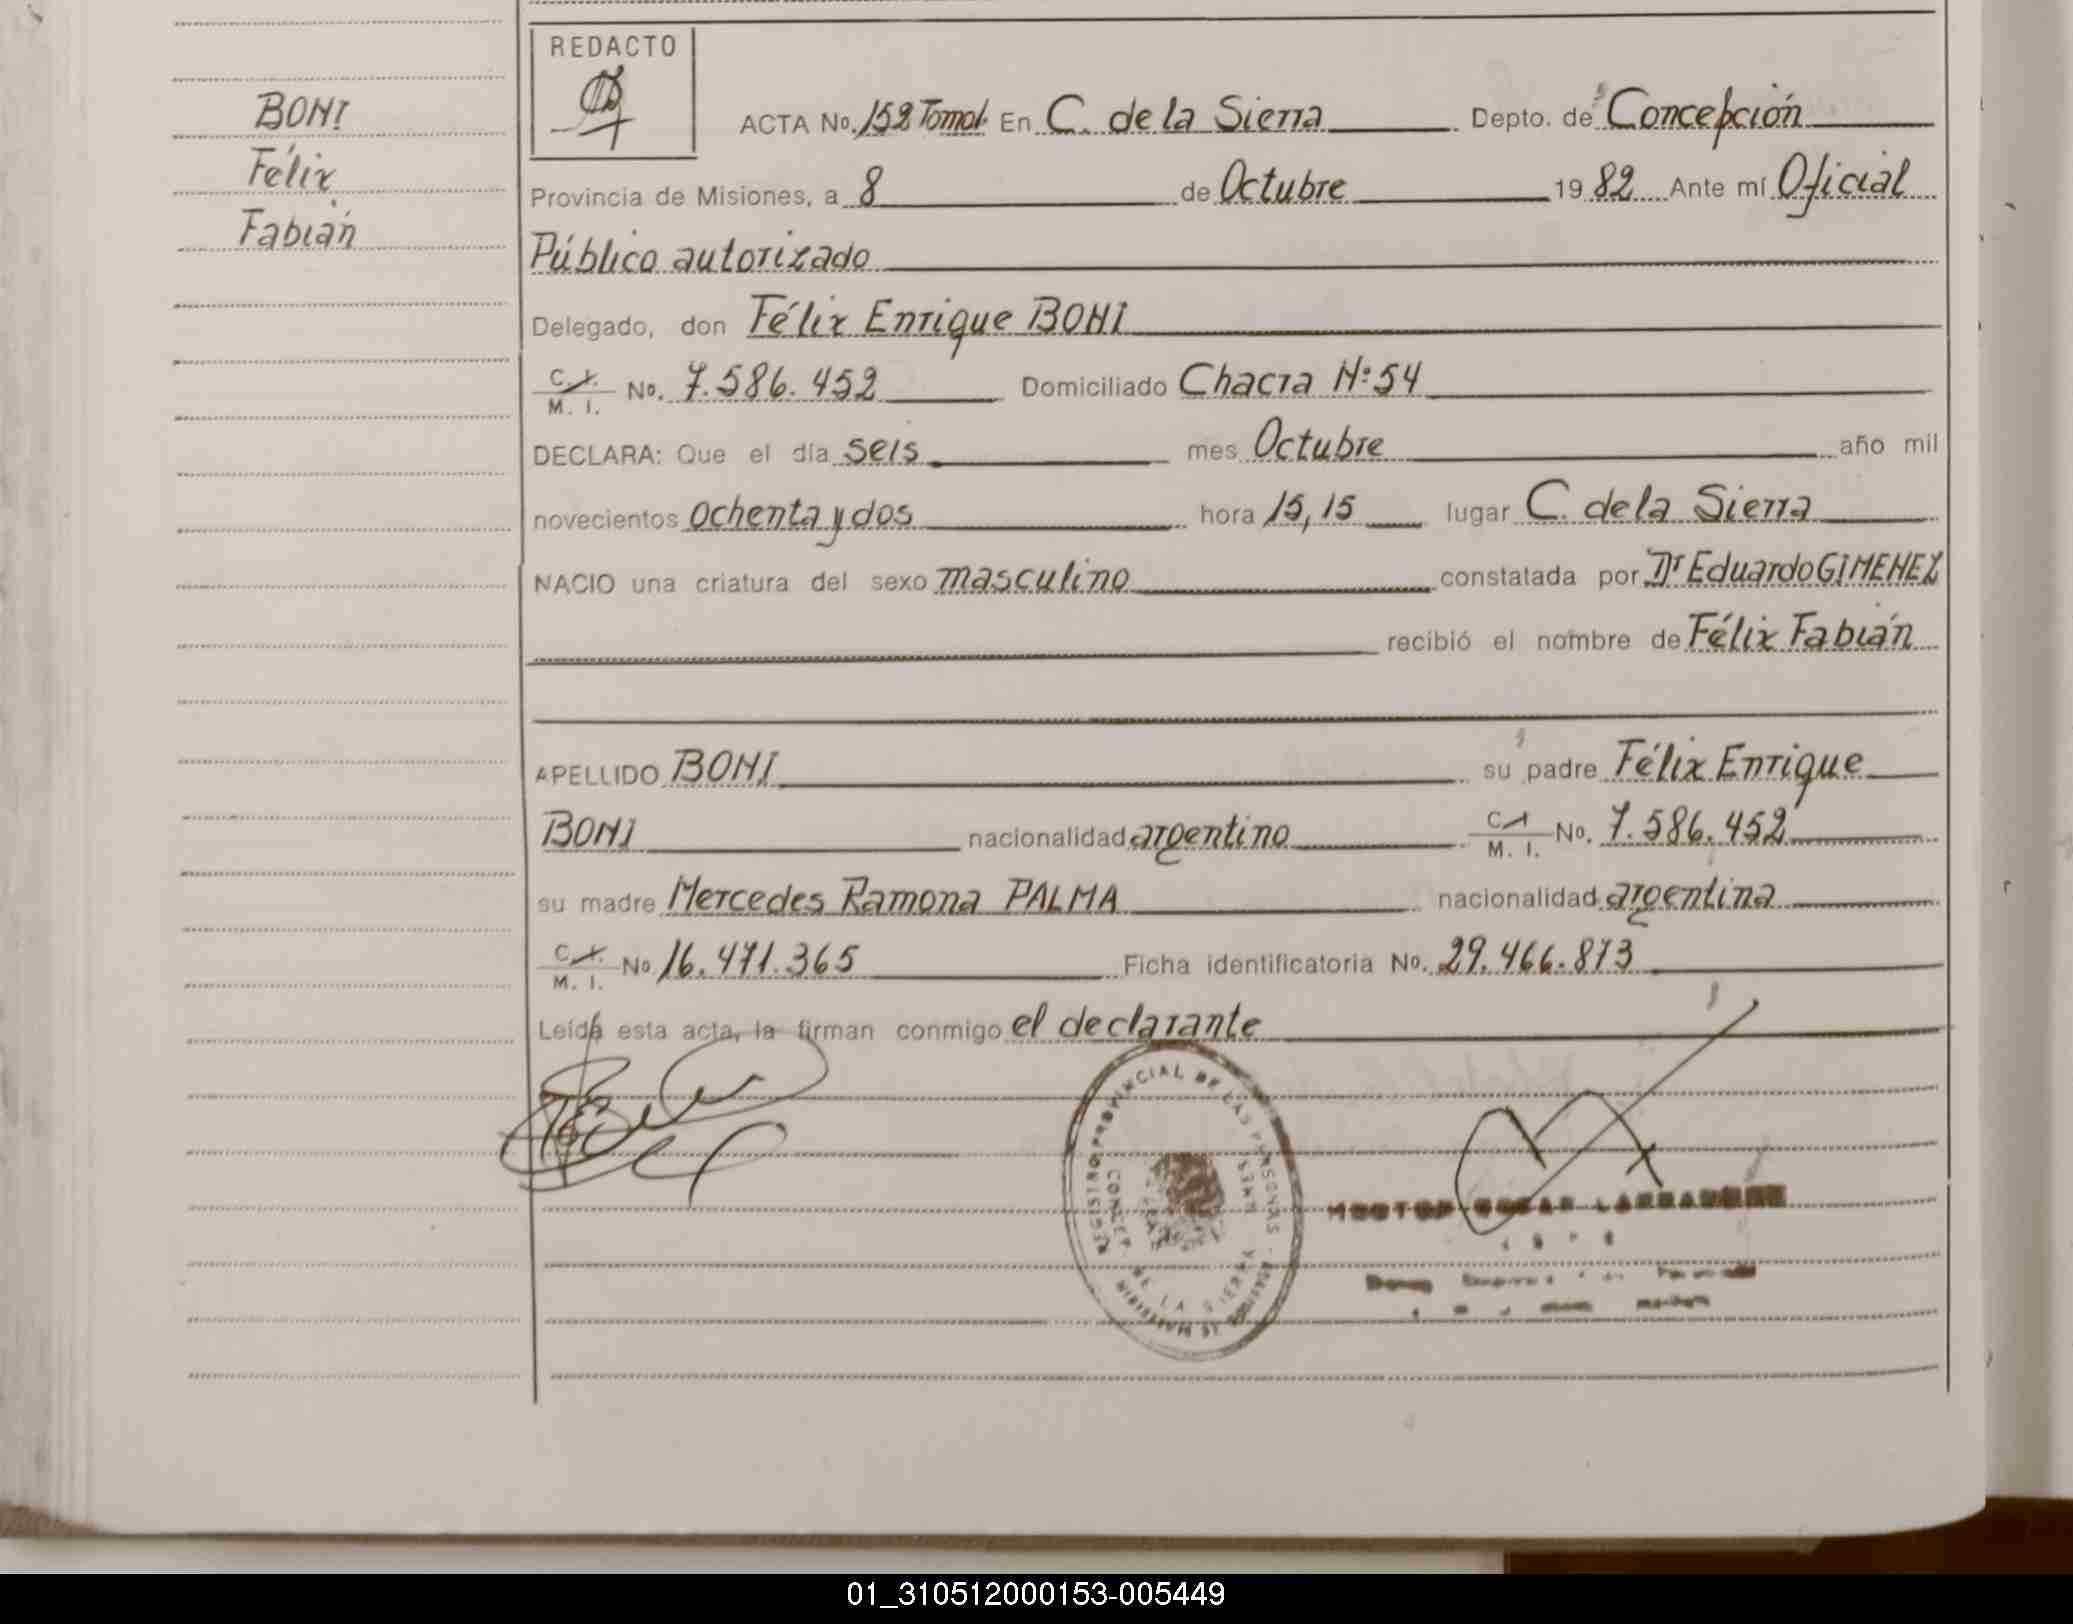 BONI
Félix
Fabián
REDACTO
ACTA No. 152 Tomo I. En C. de la Sierra Depto. de Concepción
Provincia de Misiones, a 8 de Octubre 1982 Ante mí Oficial
Público autorizado
Delegado, don Félix Enrique BONI
C. I. / M. I. No. 7.586.452 Domiciliado Chacra Nº 54
DECLARA: Que el día seis mes Octubre año mil
novecientos ochenta y dos hora 15,15 lugar C. de la Sierra
NACIO una criatura del sexo masculino constatada por Dr Eduardo GIMENEZ
recibió el nombre de Félix Fabián
APELLIDO BONI su padre Félix Enrique
BONI nacionalidad argentino C. I. / M. I. No. 7.586.452
su madre Mercedes Ramona PALMA nacionalidad argentina
C. I. / M. I. No 16.471.365 Ficha identificatoria No. 29.466.873
Leída esta acta, la firman conmigo el declarante
REGISTRO PROVINCIAL DE LAS PERSONAS
CONCEP. DE LA SIERRA
01_310512000153-005449